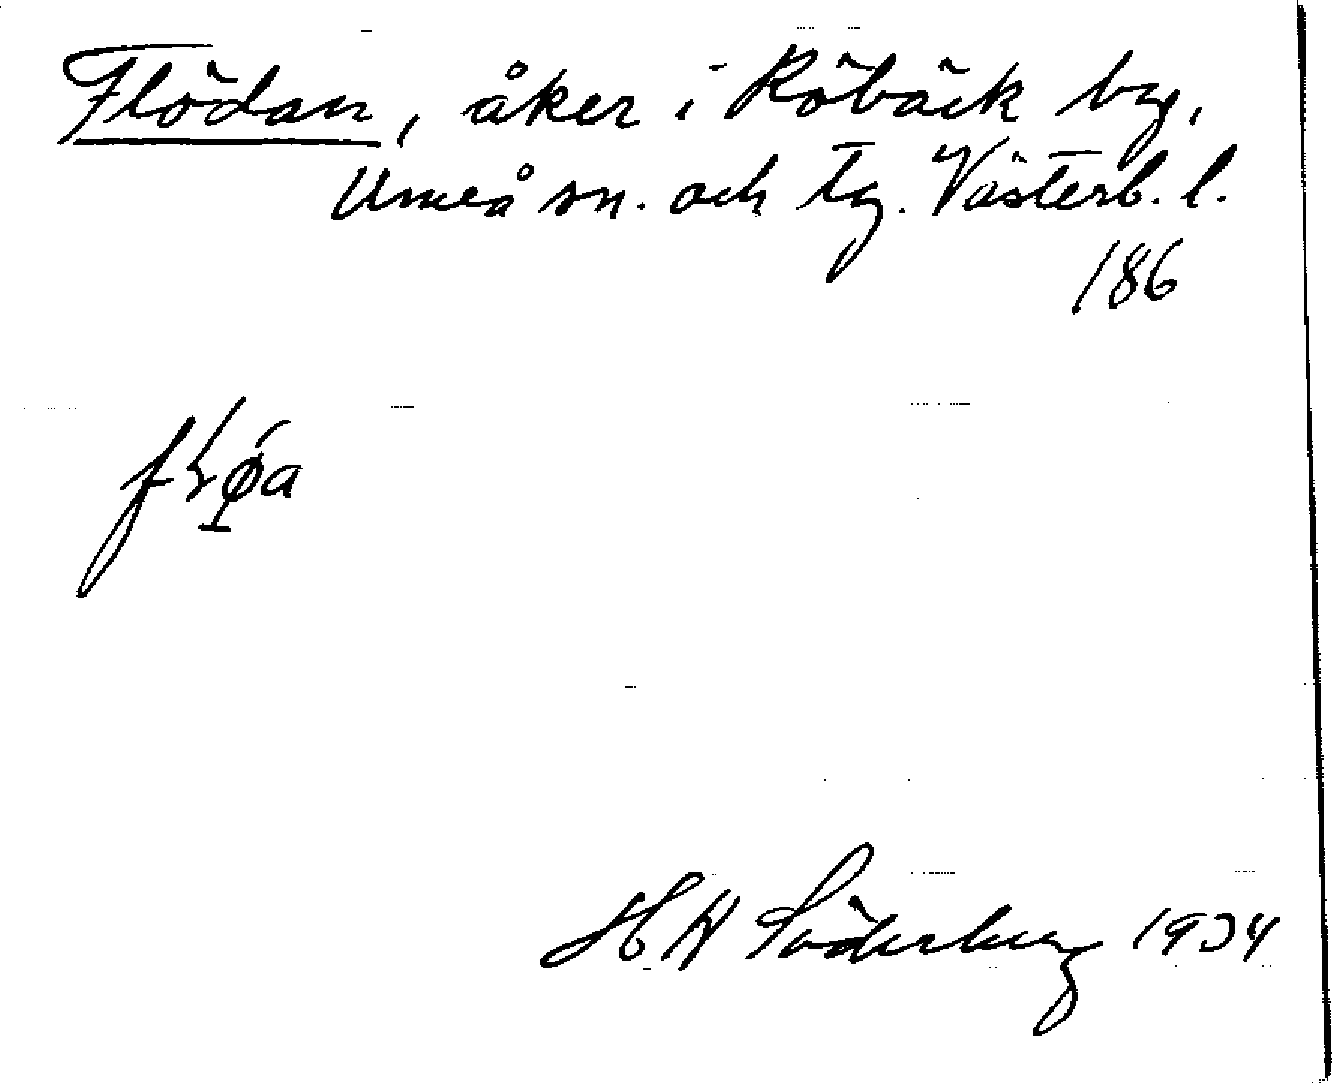 Flödan, åker i Röbäck by,
Umeå sn. och tg. Västerb. l.
186
H W Söderberg 1934